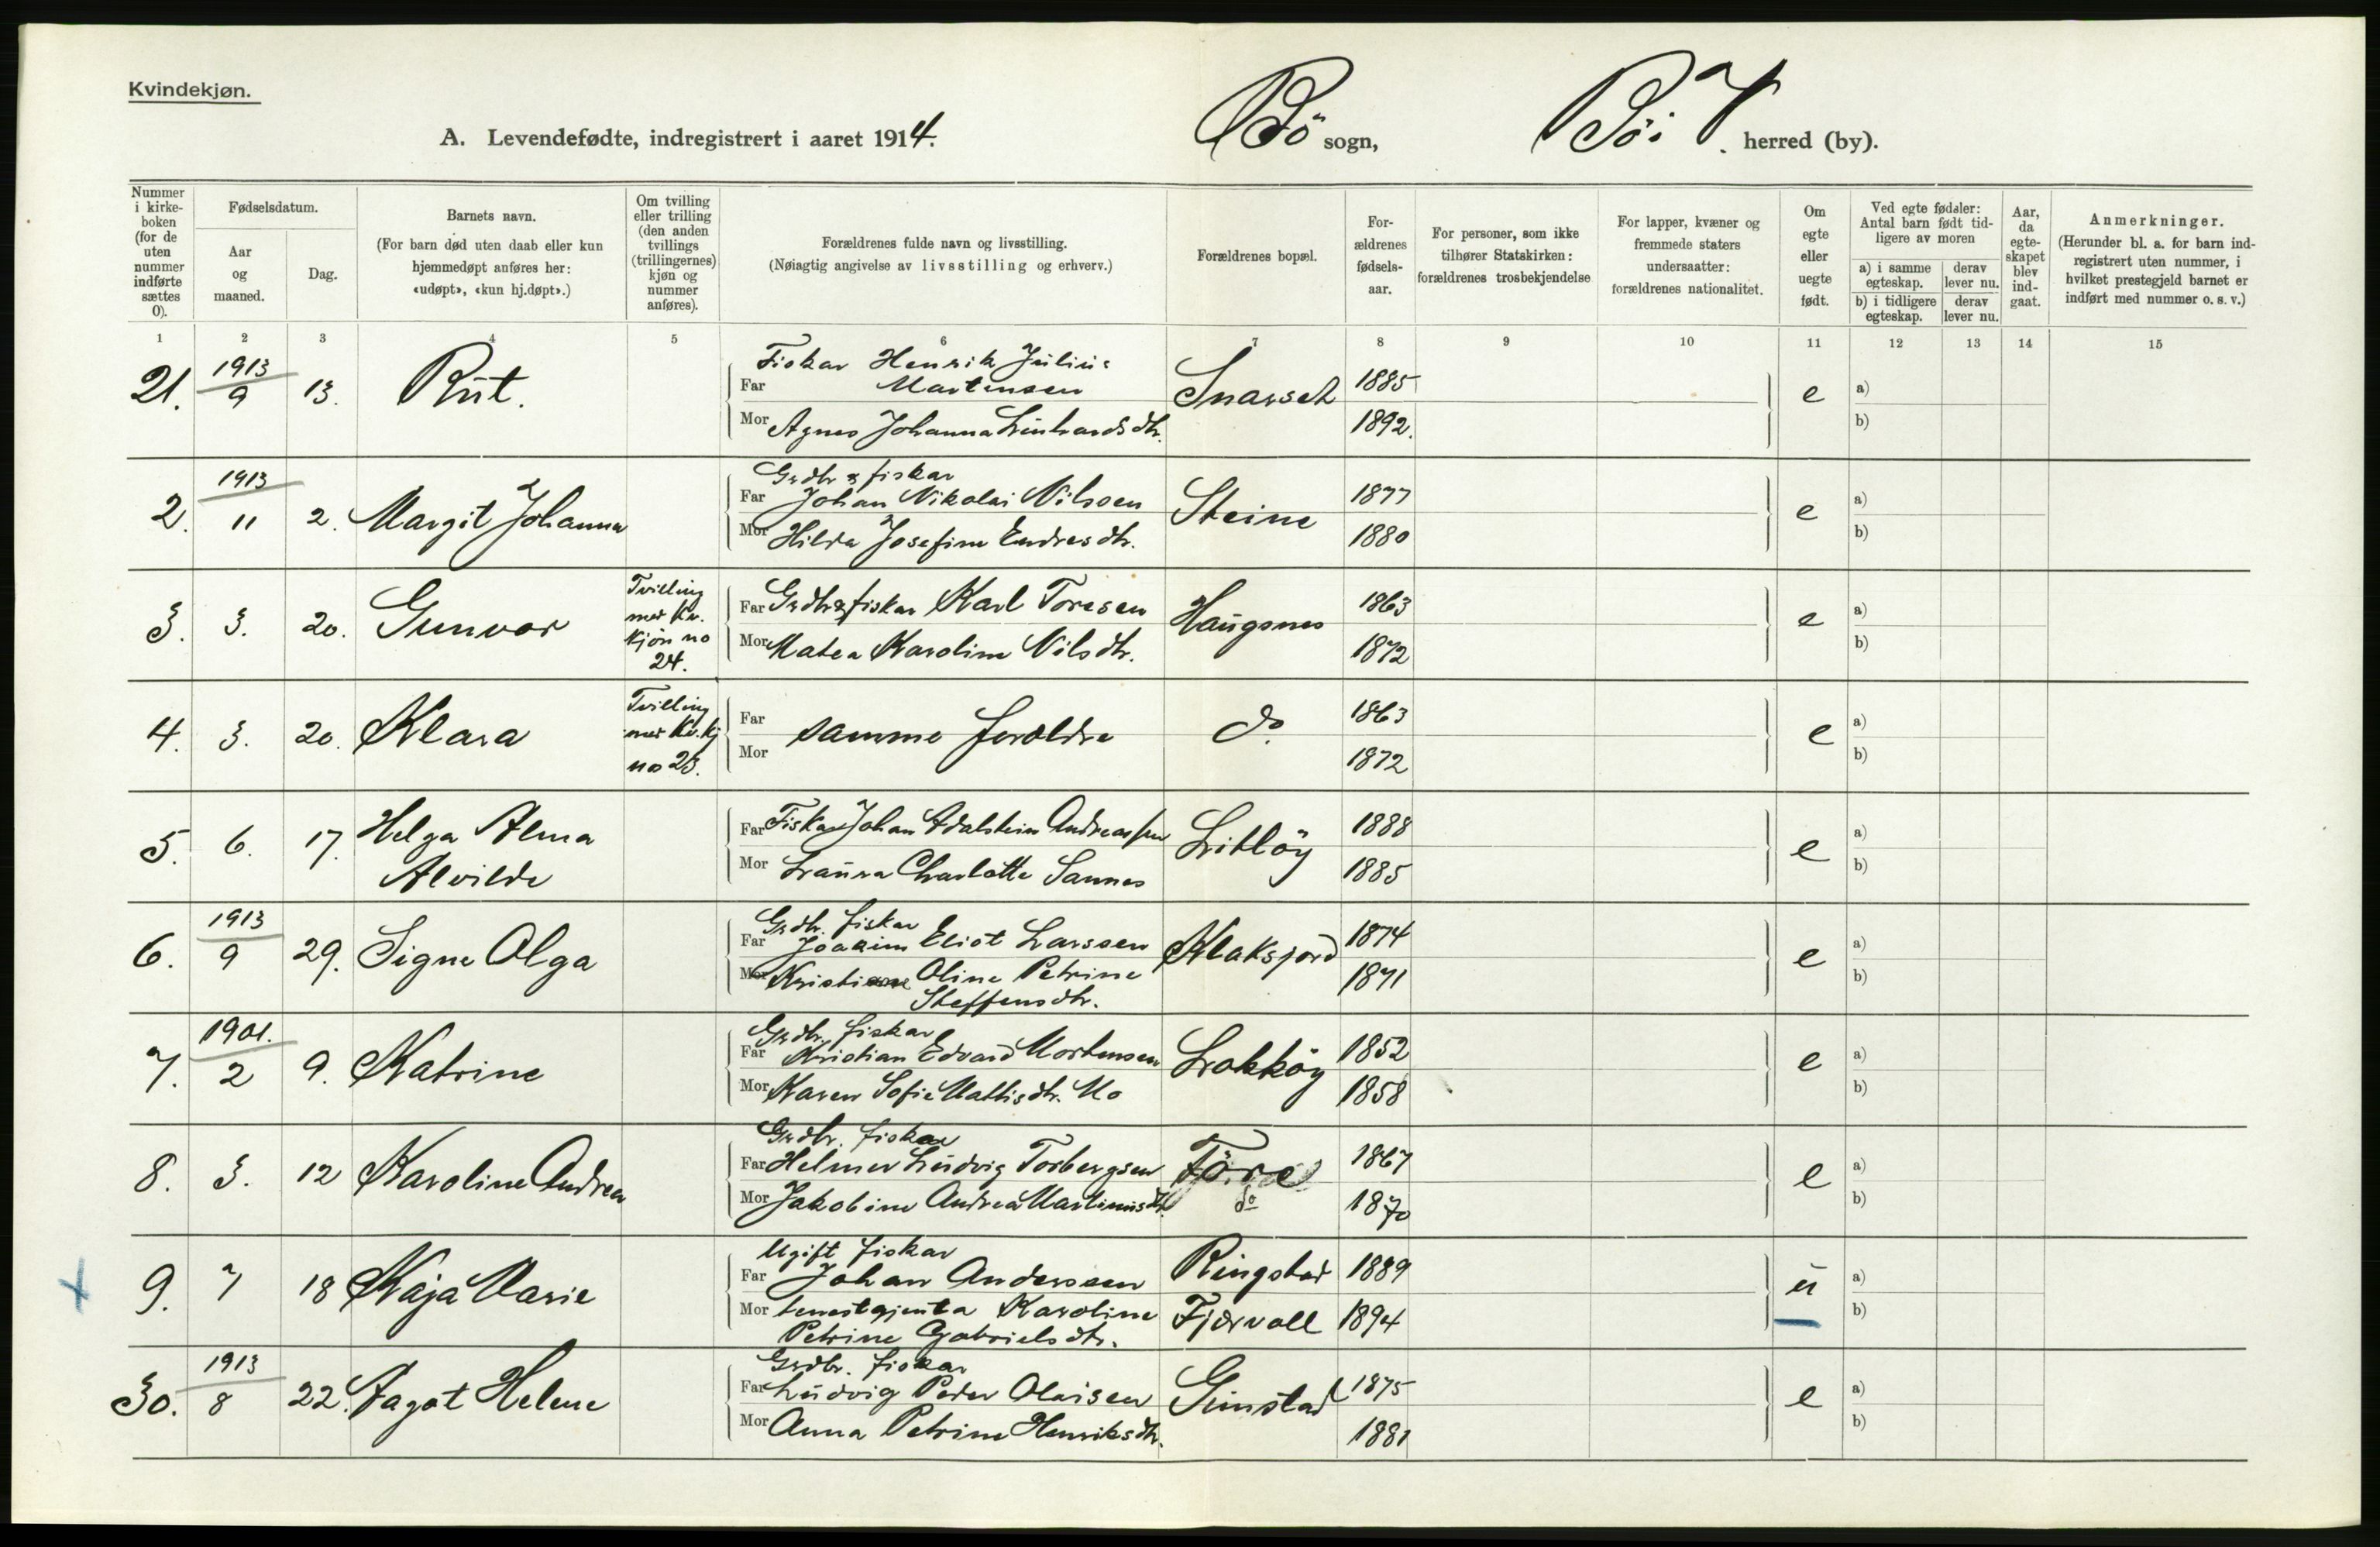 Kvindekjøn.
A. Levendefødte, indregistrert i aaret 1914.
Bö sogn,
Bö i V. herred (by).
Nummer i kirkeboken (for de uten nummer indførte sættes 0).
Fødselsdatum.
Aar og maaned.
Dag.
Barnets navn.
(For barn død uten daab eller kun hjemmedøpt anføres her: «udøpt», «kun hj.døpt».)
Om tvilling eller trilling (den anden tvillings (trillingernes) kjøn og nummer anføres).
Forældrenes fulde navn og livsstilling.
(Nøiagtig angivelse av livsstilling og erhverv.)
Forældrenes bopæl.
For-ældrenes fødsels-aar.
For personer, som ikke tilhører Statskirken: forældrenes trosbekjendelse
For lapper, kvæner og fremmede staters undersaatter: forældrenes nationalitet.
Om egte eller uegte født.
Ved egte fødsler: Antal barn født tidligere av moren
a) i samme egteskap.
derav lever nu.
b) i tidligere egteskap.
derav lever nu.
Aar, da egte-skapet blev ind-gaat.
Anmerkninger.
(Herunder bl. a. for barn indregistrert uten nummer, i hvilket prestegjeld barnet er indført med nummer o. s. v.)
1 2 3 4 5 6 7 8 9 10 11 12 13 14 15
21. 1913 9 13. Rut.
Fiskar Henrik Julius
Far Martensen Snarset 1885 e a)
Mor Agnes Johanna Linhardsdtr. 1892. b)
2. 1913 11 2. Margit Johanna
Grdbr & fiskar
Far Johan Nikolai Nilssen Steine 1877 e a)
Mor Hilda Josefine Endresdtr. 1880 b)
3. 3. 20. Gunvor
Tvilling
met kv.
kjön no
24.
Far Grdbr & fiskar Karl Toresen Haugsnes 1863 e a)
Mor Matea Karoline Nilsdtr. 1872 b)
4. 3. 20. Klara
Tvilling
met kv.kj
no 23.
Far samme foreldre do. 1863 e a)
Mor 1872 b)
5. 6. 17. Helga Alma
Alvilde
Far Fiskar Johan Adalstein Andreassen Litlöy 1888 e a)
Mor Laura Charlotte Sannes 1885 b)
6. 1913 9 29. Signe Olga
Grdbr. fiskar
Far Joakim Eliot Larssen Klaksjord 1874 e a)
Mor Oline Petrine 1871 b)
Steffensdtr.
7. 1901. 2 9. Katrine
Grdbr. fiskar
Far Kristian Edvard Mortensen 1852 e a)
Mor Karen Sofie Mattisdtr. Mo 1858 b)
8. 3. 12 Karoline Andrea
Grdbr. fiskar
Far Helmer Ludvig Torbergsen Före 1867 e a)
Mor Jakobine Andrea Martinusdtr. do 1870 b)
9. 7 18 Kaja Marie
Ugift fiskar
Far Johan Anderssen Ringstad 1889 u a)
Mor tenestgjenta Karoline Fjærvoll 1894 b)
Petrine Gabrielsdtr.
30. 1913 8 22. Dagot Helene
Grdbr. fiskar
Far Ludvig Peder Olaisen Gunstad 1875 e a)
Mor Anna Petrine Henriksdtr. 1881 b)